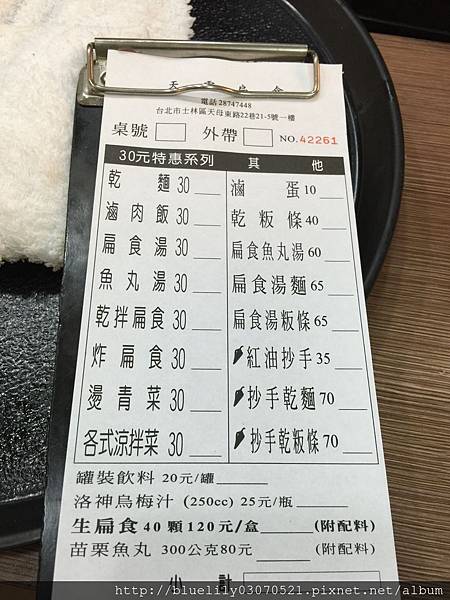 電話 28747448
台北市士林區天母東路22巷21-5號一樓
桌號 外帶 NO.42261
30元特惠系列 其他
乾麵 30 滷蛋 10
滷肉飯 30 乾粄條 40
扁食湯 30 扁食魚丸湯 60
魚丸湯 30 扁食湯麵 65
乾拌扁食 30 扁食湯粄條 65
炸扁食 30 紅油抄手 35
燙青菜 30 抄手乾麵 70
各式涼拌菜 30 抄手乾粄條 70
罐裝飲料 20元/罐
洛神烏梅汁 (250cc) 25元/瓶
生扁食 40顆120元/盒 (附配料)
苗栗魚丸 300公克80元 (附配料)
小計
http://bluelily03070521.pixnet.net/album